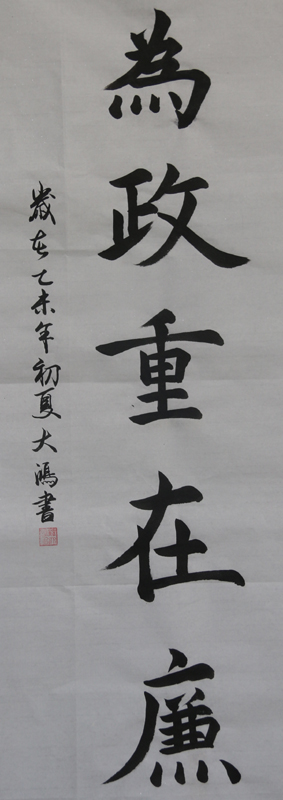 為政重在廉
歲在乙未年初夏大鴻書